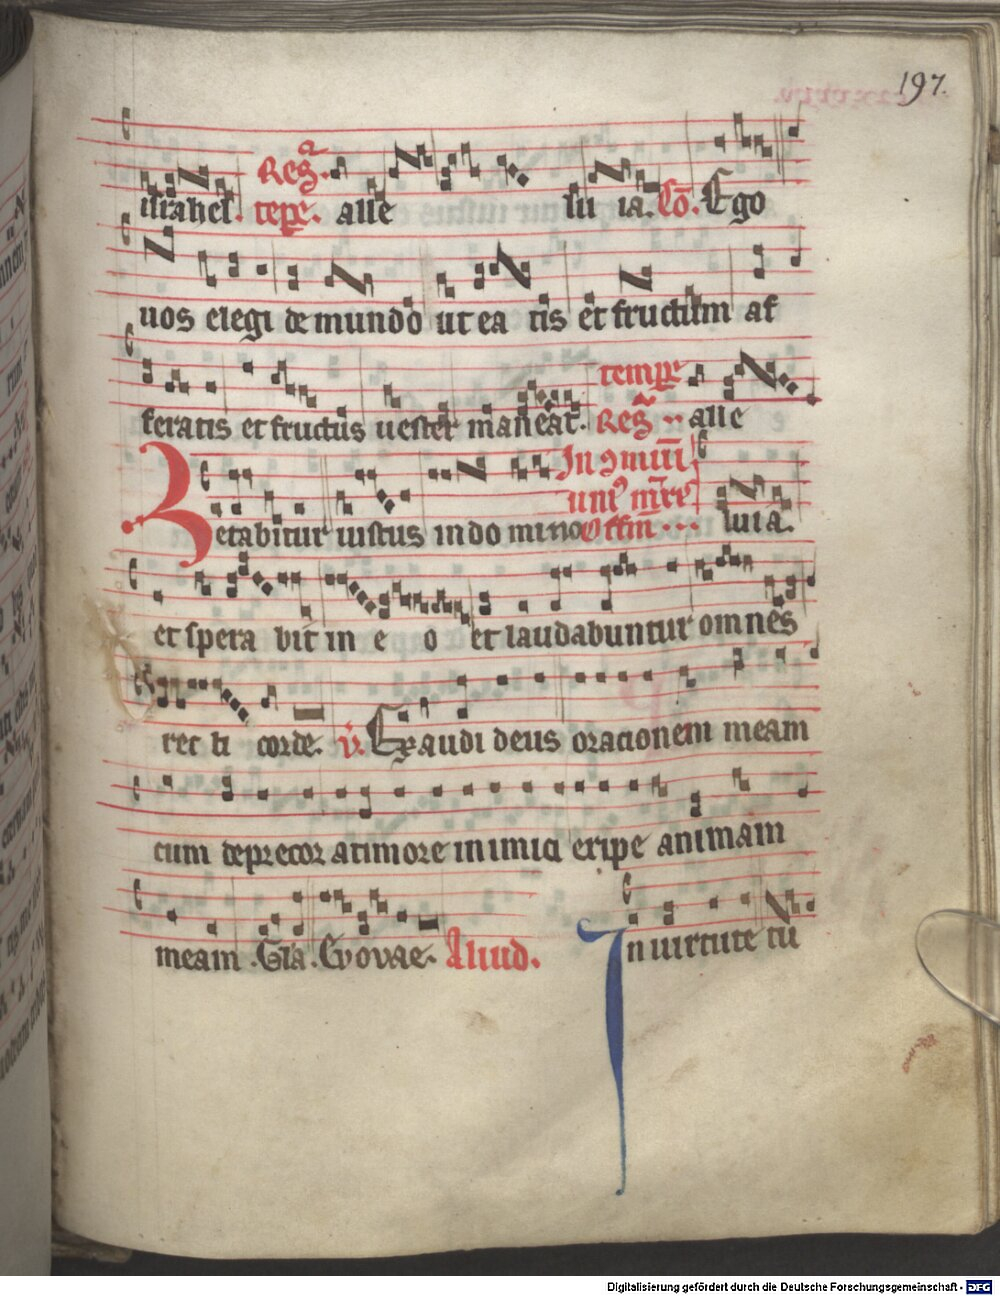 197.
israhel. Resq̄. tepr̄e. alle lu ia. Co̅. Ego
uos elegi de mundo ut ea tis et fructum af
feratis et fructus uester maneat. tempr̄e Resq̄ alle
Letabitur iustus in do mino In ɔmuni uni᷒ mr̄e Offm̄ luia.
et spera bit in e o et laudabuntur omnes
rec ti corde. v̄. Exaudi deus orationem meam
cum deprecor a timore inimici eripe animam
meam. Gl̄a. Evovae. Aliud. In uirtute tu
Digitalisierung gefördert durch die Deutsche Forschungsgemeinschaft - DFG